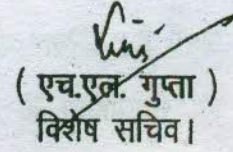 ( एच.एल. गुप्ता )
विशेष सचिव।